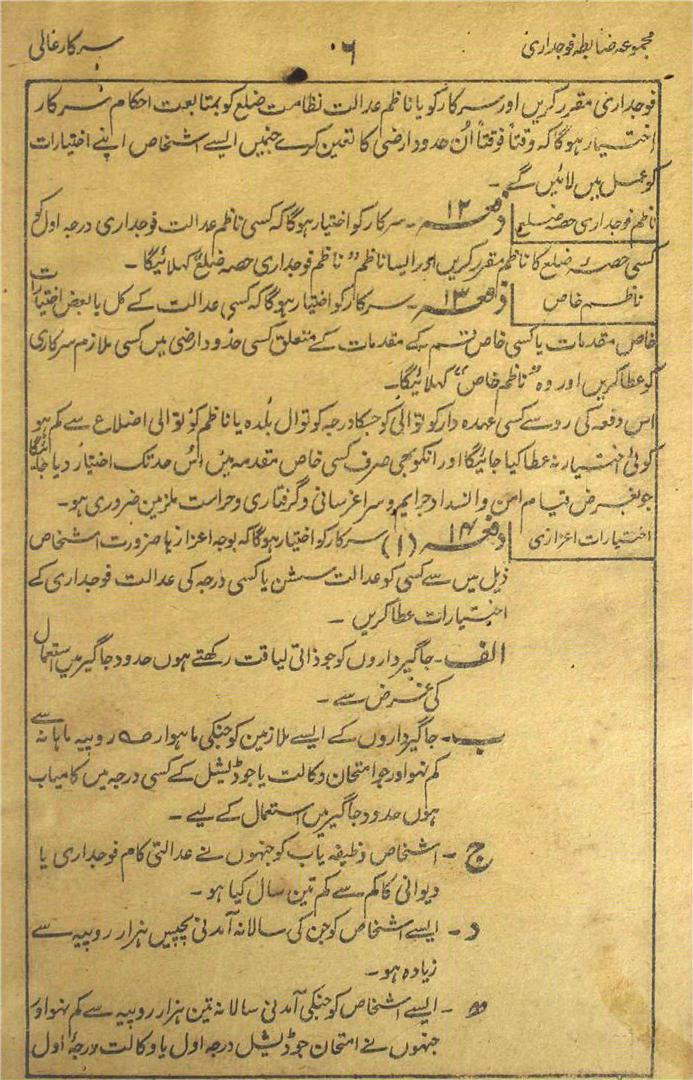 مجموعہ ضابطہ فوجداری
۰۶
سرکار عالی
فوجداری مقرر کریں اور سرکار کو یا ناظم عدالت نظامت ضلع کو بمتابعت احکام سرکار
اختیار ہوگا کہ وقتاً فوقتاً اُن حدود ارضی کا تعین کرے جنمیں ایسے اشخاص اپنے اختیارات
کو عمل میں لائیں گے۔
ناظم فوجداری حصہ ضلع
دفعہ ۱۲۔ سرکار کو اختیار ہوگا کہ کسی ناظم عدالت فوجداری درجہ اول کو
کسی حصہ ضلع کا ناظم مقرر کریں اور ایسا ناظم "ناظم فوجداری حصہ ضلع" کہلائیگا۔
ناظم خاص
دفعہ ۱۳۔ سرکار کو اختیار ہوگا کہ کسی عدالت کے کل یا بعض اختیارات
خاص مقدمات یا کسی خاص قسم کے مقدمات کے متعلق کسی حدود ارضی میں کسی ملازم سرکاری
کو عطا کریں اور وہ "ناظم خاص" کہلائیگا۔
اس دفعہ کی رو سے کسی عہدہ دار کوتوالی کو جسکا درجہ کوتوال بلدہ یا ناظم کوتوالی اضلاع سے کم ہو
کوئی اختیار نہ عطا کیا جائیگا اور انکو بھی صرف کسی خاص مقدمہ میں اُس حد تک اختیار دیا جائیگا
جو بغرض قیام امن و انسداد جرایم و سراغرسانی و گرفتاری و حراست ملزمین ضروری ہو۔
اختیارات اعزازی
دفعہ ۱۴ (۱) سرکار کو اختیار ہوگا کہ بوجہ اعزاز یا ضرورت اشخاص
ذیل میں سے کسی کو عدالت سشن یا کسی درجہ کی عدالت فوجداری کے
اختیارات عطا کریں۔
الف۔ جاگیرداروں کو جو ذاتی لیاقت رکھتے ہوں حدود جاگیر میں استعمال
کی غرض سے۔
ب۔ جاگیرداروں کے ایسے ملازمین کو جنکی ماہوار روپیہ ماہانہ سے
کم نہو اور جو امتحان وکالت یا جوڈیشل کے کسی درجہ میں کامیاب
ہوں حدود جاگیر میں استعمال کے لیے۔
ج۔ اشخاص وظیفہ یاب کو جنہوں نے عدالتی کام فوجداری یا
دیوانی کا کم سے کم تین سال کیا ہو۔
د۔ ایسے اشخاص کو جن کی سالانہ آمدنی پچیس ہزار روپیہ سے
زیادہ ہو۔
ھ۔ ایسے اشخاص کو جنکی آمدنی سالانہ تین ہزار روپیہ سے کم نہو اور
جنہوں نے امتحان جوڈیشل درجہ اول یا وکالت درجۂ اول